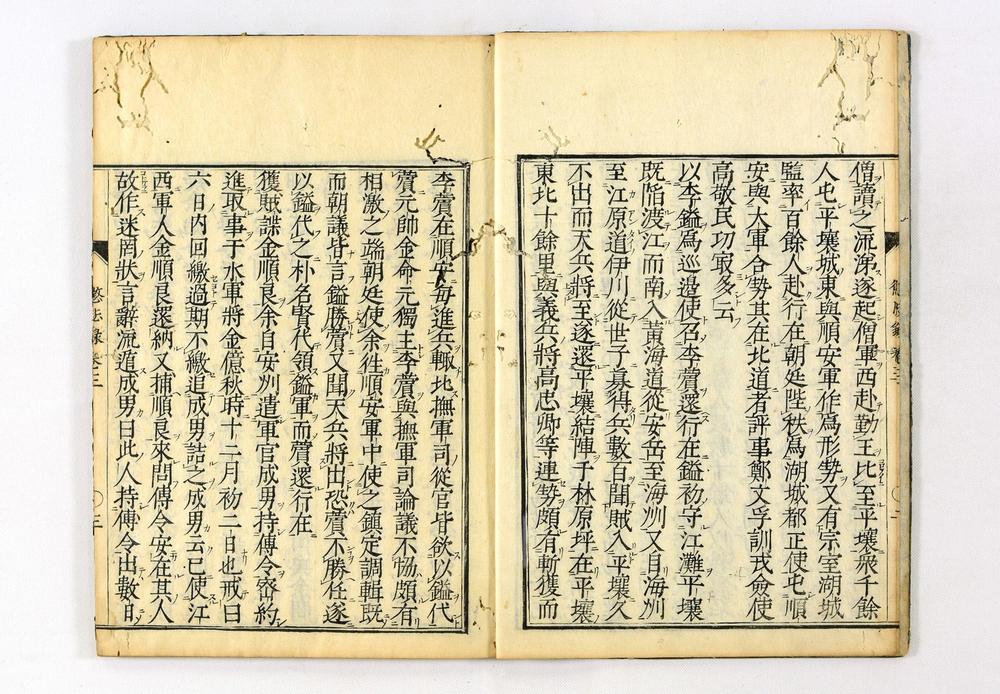 僧讀之流涕遂起僧軍西赴勤王比至平壤衆千餘
人屯平壤城東與順安軍作為形勢又有宗室湖城
監率百餘人赴行在朝廷陞秩為湖城都正使屯順
安與大軍合勢其在北道者評事鄭文孚訓戎僉使
高敬民功㝡多云
以李鎰為巡邊使召李薲還行在鎰初守江灘平壤
既陷渡江而南入黃海道從安岳至海州又自海州
至江原道伊川從世子募得兵數百聞賊入平壤久
不出而天兵將至遂還平壤結陣于林原坪在平壤
東北十餘里與義兵將高忠卿等連勢頗有斬獲而
李薲在順安每進兵輒北撫軍司從官皆欲以鎰代
薲元帥金命元獨主李薲與撫軍司論議不恊頗有
相激之端朝廷使余徃順安軍中使之鎮定調輯既
而朝議皆言鎰勝薲又聞天兵將出恐薲不勝任遂
以鎰代之朴名賢代領鎰軍而薲還行在
獲賊諜金順良余自安州遣軍官成男持傳令密約
進取事于水軍將金億秋時十二月初二日也戒曰
六日内回繳過期不繳追成男詰之成男云已使江
西軍人金順良還納又捕順良來問傳令安在其人
故作迷罔狀言辭流遁成男曰此人持傳令出數日
懲毖錄 卷三
懲毖錄 卷三